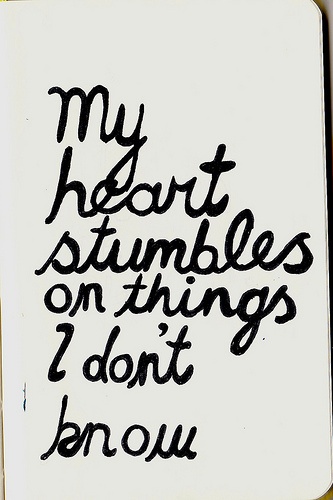 My
heart
stumbles
on things
I don't
know